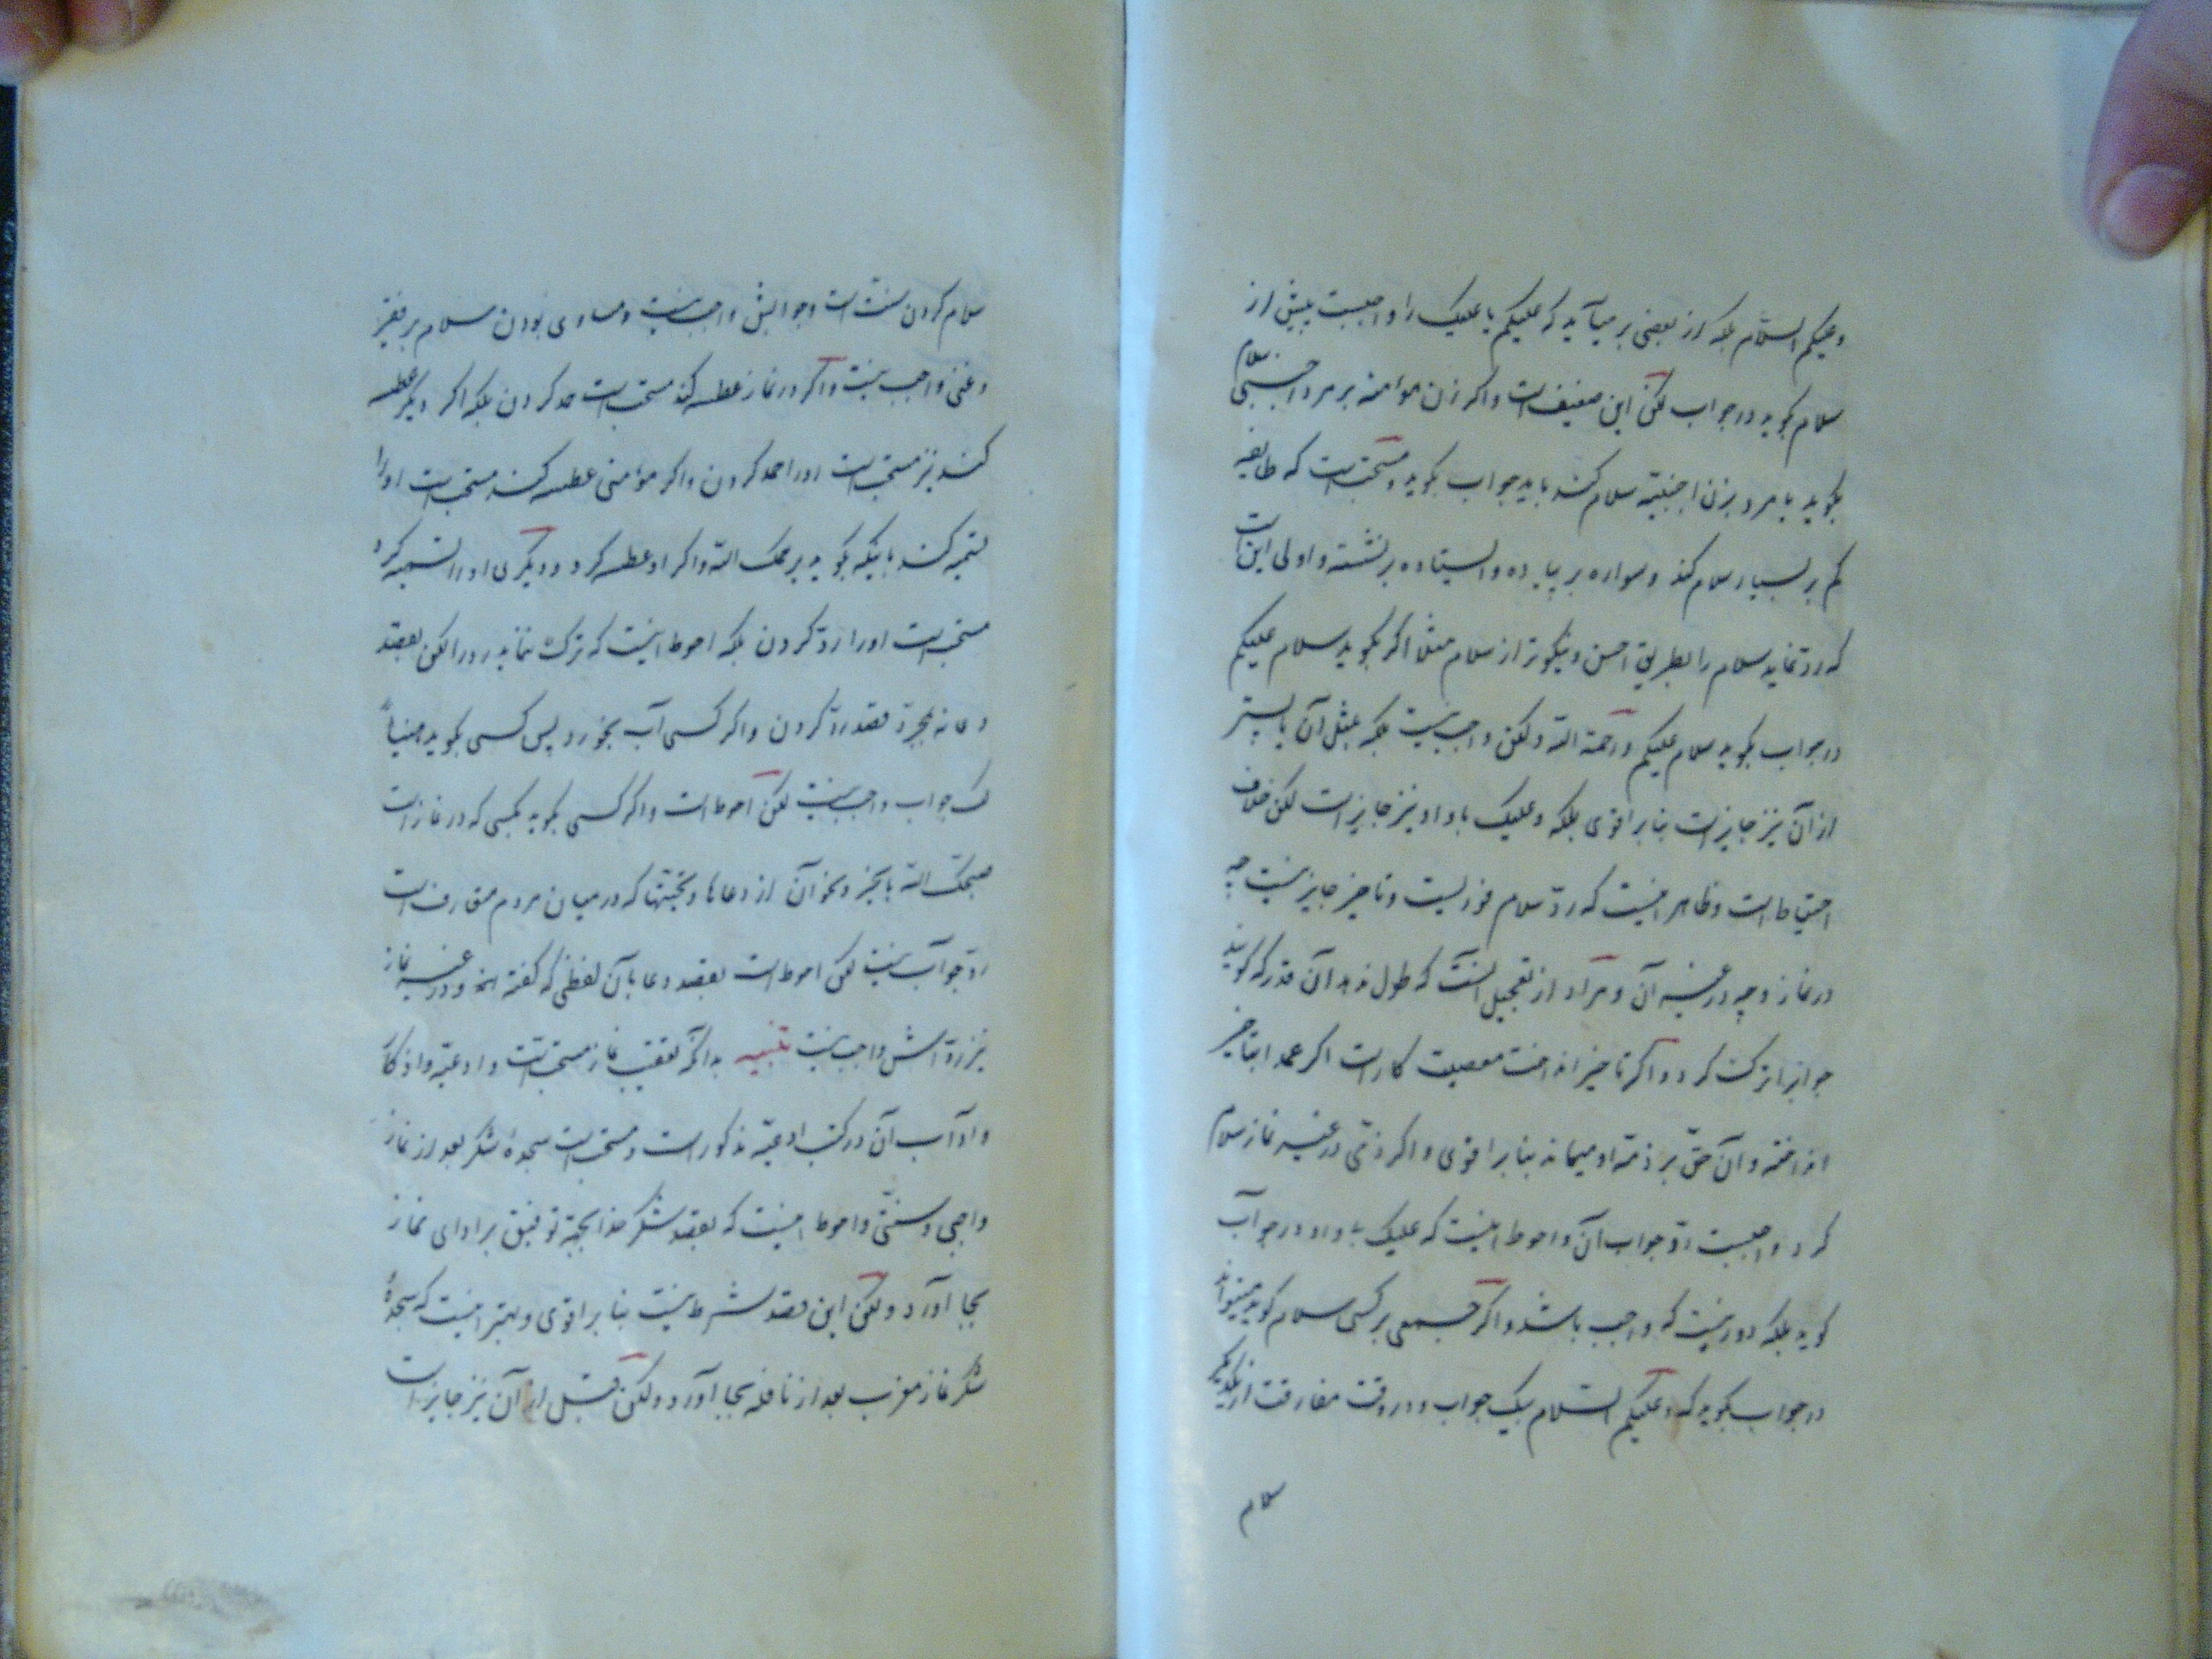 وعلیکم السلام بلکه از بعضی بر میآید که علیکم یا علیک را واجبست پیش از
سلام بگوید در جواب لکن این ضعیف است و اگر زن مؤمنه بر مرد اجنبی سلام
بگوید یا مرد بزن اجنبیّه سلام کند باید جواب بگوید و مستحب است که طایفه
کم بر بسیار سلام کند و سواره بر پیاده و ایستاده بر نشسته و اولی این است
که ردّ نماید سلام را بطریق احسن و نیکوتر از سلام مثلاً اگر بگوید سلام علیکم
در جواب بگوید سلام علیکم و رحمة الله ولکن واجب نیست بلکه بمثل آن یا پستر
از آن نیز جایز است بنا بر اقوی بلکه وعلیک با واو نیز جایز است لکن خلاف
احتیاط است و ظاهر اینست که ردّ سلام فوریست و تاخیر جایز نیست چه
در نماز و چه در غیر آن و مراد از تعجیل آنست که طول ندهد آن قدر که گویند
جواب را ترک کرد و اگر تاخیر انداخت معصیت کار است اگر عمدا بتاخیر
انداخته و آن حق بر ذمّه او میماند بنا بر اقوی و اگر ذمّی در غیر نماز سلام
کرد واجبست ردّ جواب آن و احوط اینست که علیک با واو در جواب
گوید بلکه دور نیست که واجب باشد و اگر جمعی بر کسی سلام کنند میتواند
در جواب بگوید که وعلیکم السلام یک جواب و در وقت مفارقت از یکدیگر
سلام
سلام کردن سنّت است و جوابش واجب نیست و مساوی بودن سلام بر فقیر
و غنی واجب نیست و اگر در نماز عطسه کند مستحب است حمد کردن بلکه اگر دیگر عطسه
کند نیز مستحب است او را حمد کردن و اگر مؤمنی عطسه کند مستحب است او را
تسمیه کند باینکه بگوید یرحمک الله و اگر او عطسه کرد و دیگری او را تسمیه کرد
مستحب است او را ردّ کردن بلکه احوط اینست که ترک ننماید ردّ را لکن بقصد
دعا نه بمجرّد قصد ردّ کردن و اگر کسی آب بخورد پس کسی بگوید هنیئاً
لک جواب واجب نیست لکن احوط است و اگر کسی بگوید بکسی که در نماز است
صبحک الله بالخیر و نحو آن از دعاها و تحیّتها که در میان مردم متعارف است
ردّ جواب نیست لکن احوط است بقصد دعا بآن لفظی که گفته اند و در غیر نماز
نیز ردّ آنش واجب نیست تنبیه بدانکه تعقیب نماز مستحب است و ادعیّه و اذکار
و آداب آن در کتب ادعیّه مذکور است و مستحب است سجدهٔ شکر بعد از نماز
واجبی و سنّتی و احوط اینست که بقصد شکر خدا بجهة توفیق بر ادای نماز
بجا آورد ولکن این قصد شرط نیست بنا بر اقوی و بهتر اینست که سجدهٔ
شکر نماز مغرب بعد از نافله بجا آورد ولکن قبل از آن نیز جایز است